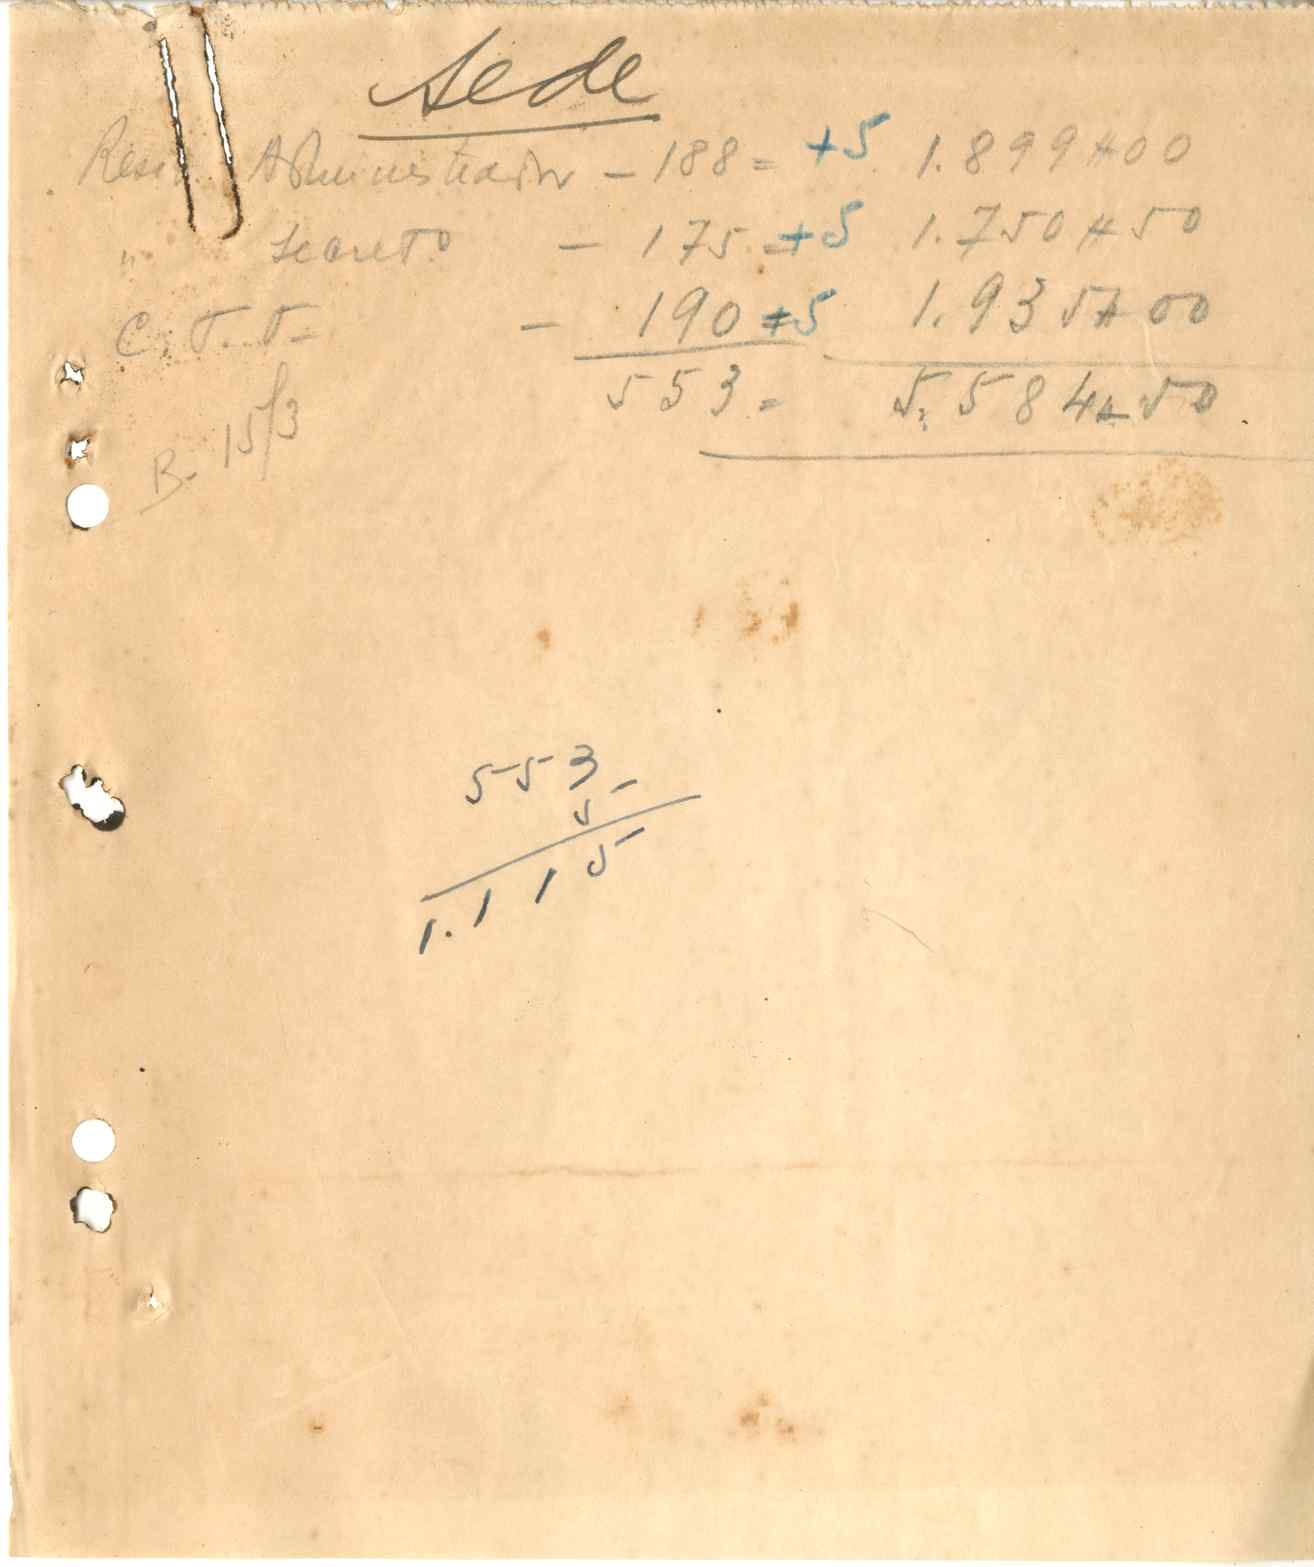 Sede
Resi. Administrador - 188 = +5 1.899$00
" Secret.º - 175 = +5 1.750$50
C. T. T. - 190 = +5 1.935$00
553 = 5.584$50
B. 15/3
553
5
1.115